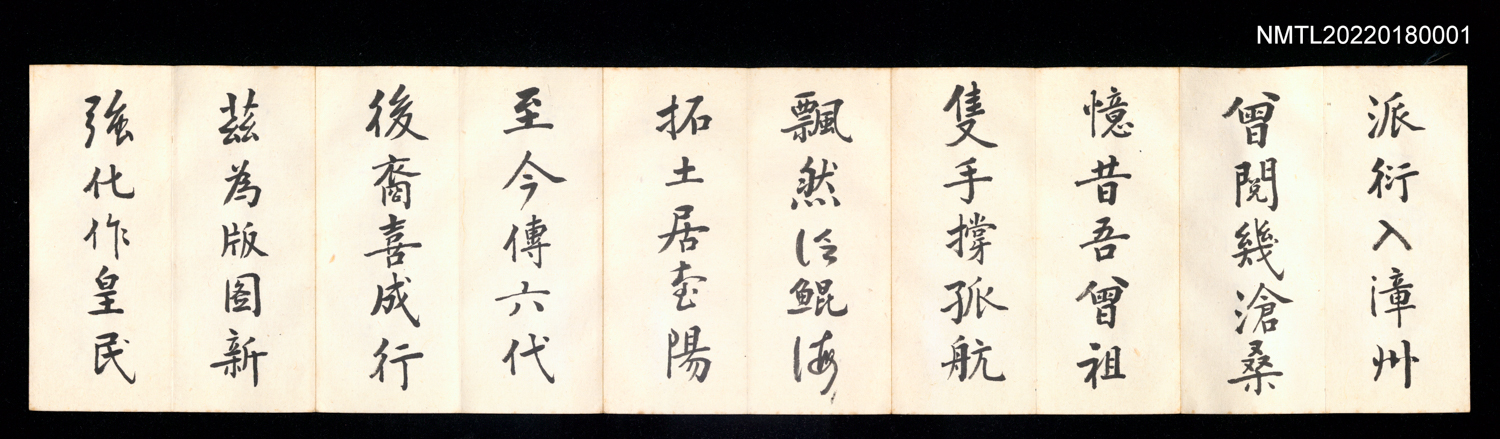 NMTL20220180001
派衍入漳州
曾閱幾滄桑
憶昔吾曾祖
隻手撐孤航
飄然泛鯤海
拓土居臺陽
至今傳六代
後裔喜成行
茲為版圖新
強化作皇民